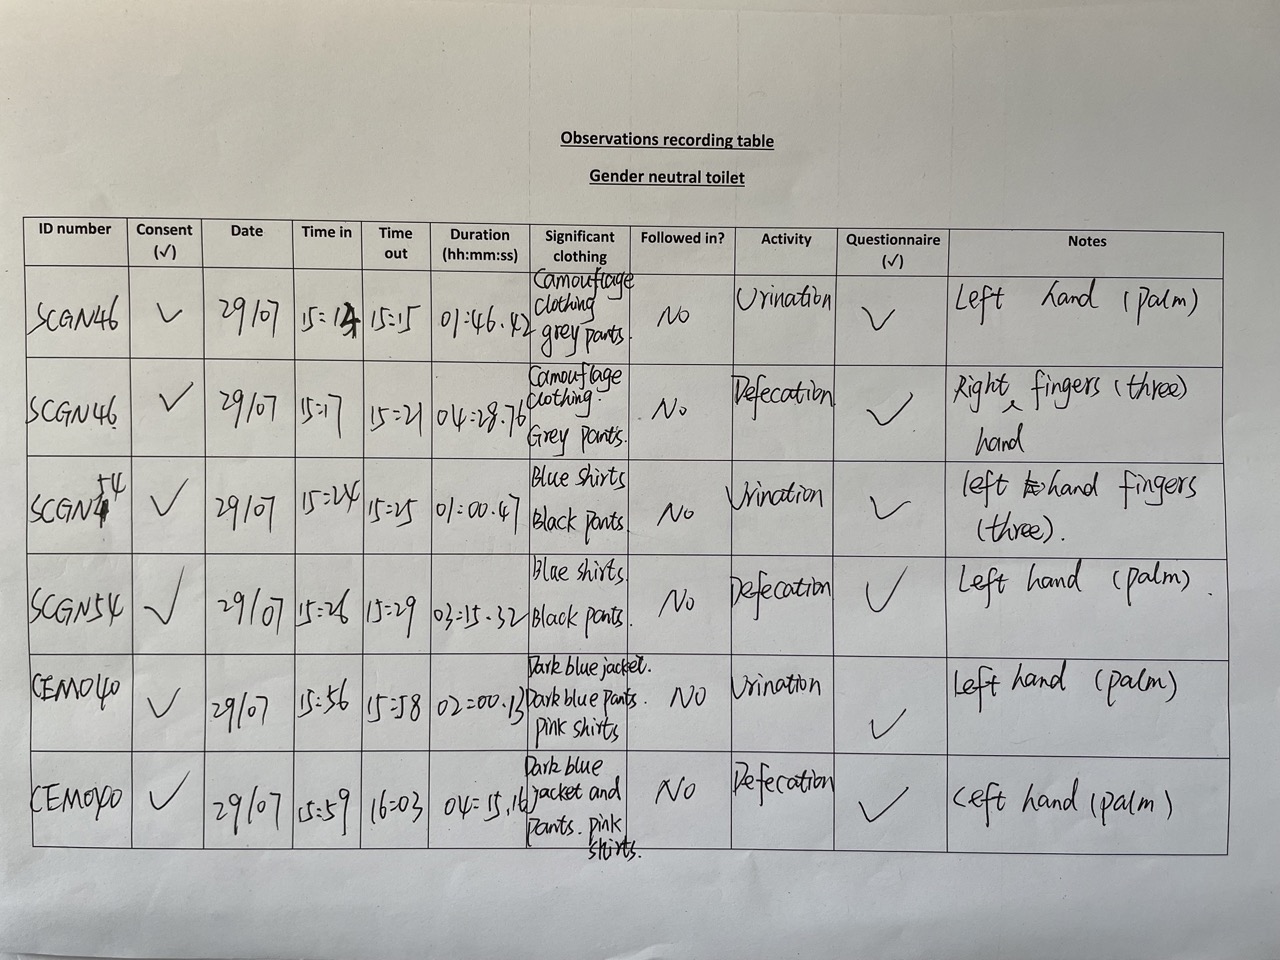 Observations recording table
Gender neutral toilet
ID number Consent (✓) Date Time in Time out Duration (hh:mm:ss) Significant clothing Followed in? Activity Questionnaire (✓) Notes
SCGN46 ✓ 29/07 15:14 15:15 01:46.42 Camouflage clothing grey pants. No Urination ✓ Left hand (palm)
SCGN46 ✓ 29/07 15:17 15:21 04:28.76 Camouflage clothing. Grey pants. No Defecation ✓ Right hand fingers (three)
SCGN54 ✓ 29/07 15:24 15:25 01:00.47 Blue shirts Black pants. No Urination ✓ left hand fingers (three).
SCGN54 ✓ 29/07 15:26 15:29 03:15.32 Blue shirts. Black pants. No Defecation ✓ Left hand (palm).
CEM040 ✓ 29/07 15:56 15:58 02:00.13 Dark blue jacket. Dark blue pants. pink shirts NO Urination ✓ Left hand (palm)
CEM040 ✓ 29/07 15:59 16:03 04:15.16 Dark blue jacket and pants. pink shirts. No Defecation ✓ Left hand (palm)